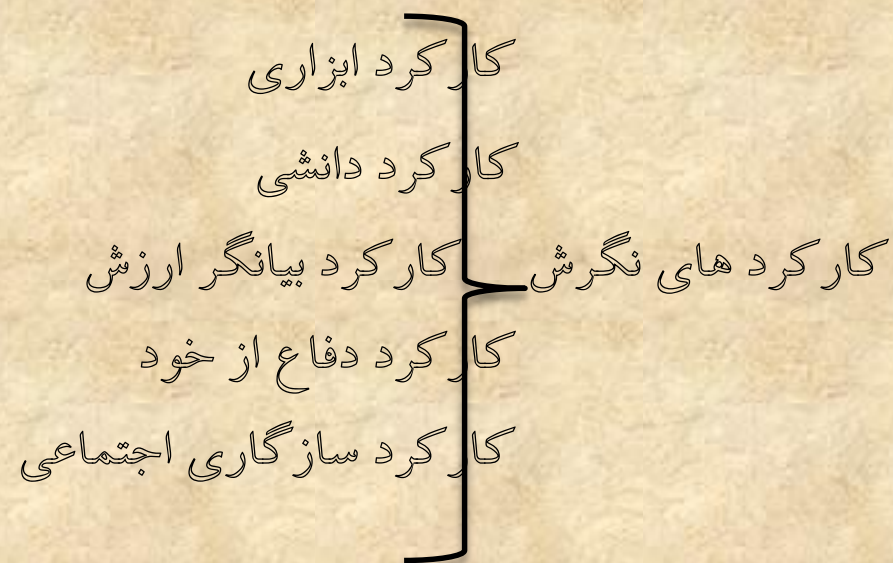 کارکرد های نگرش
کارکرد ابزاری
کارکرد دانشی
کارکرد بیانگر ارزش
کارکرد دفاع از خود
کارکرد سازگاری اجتماعی